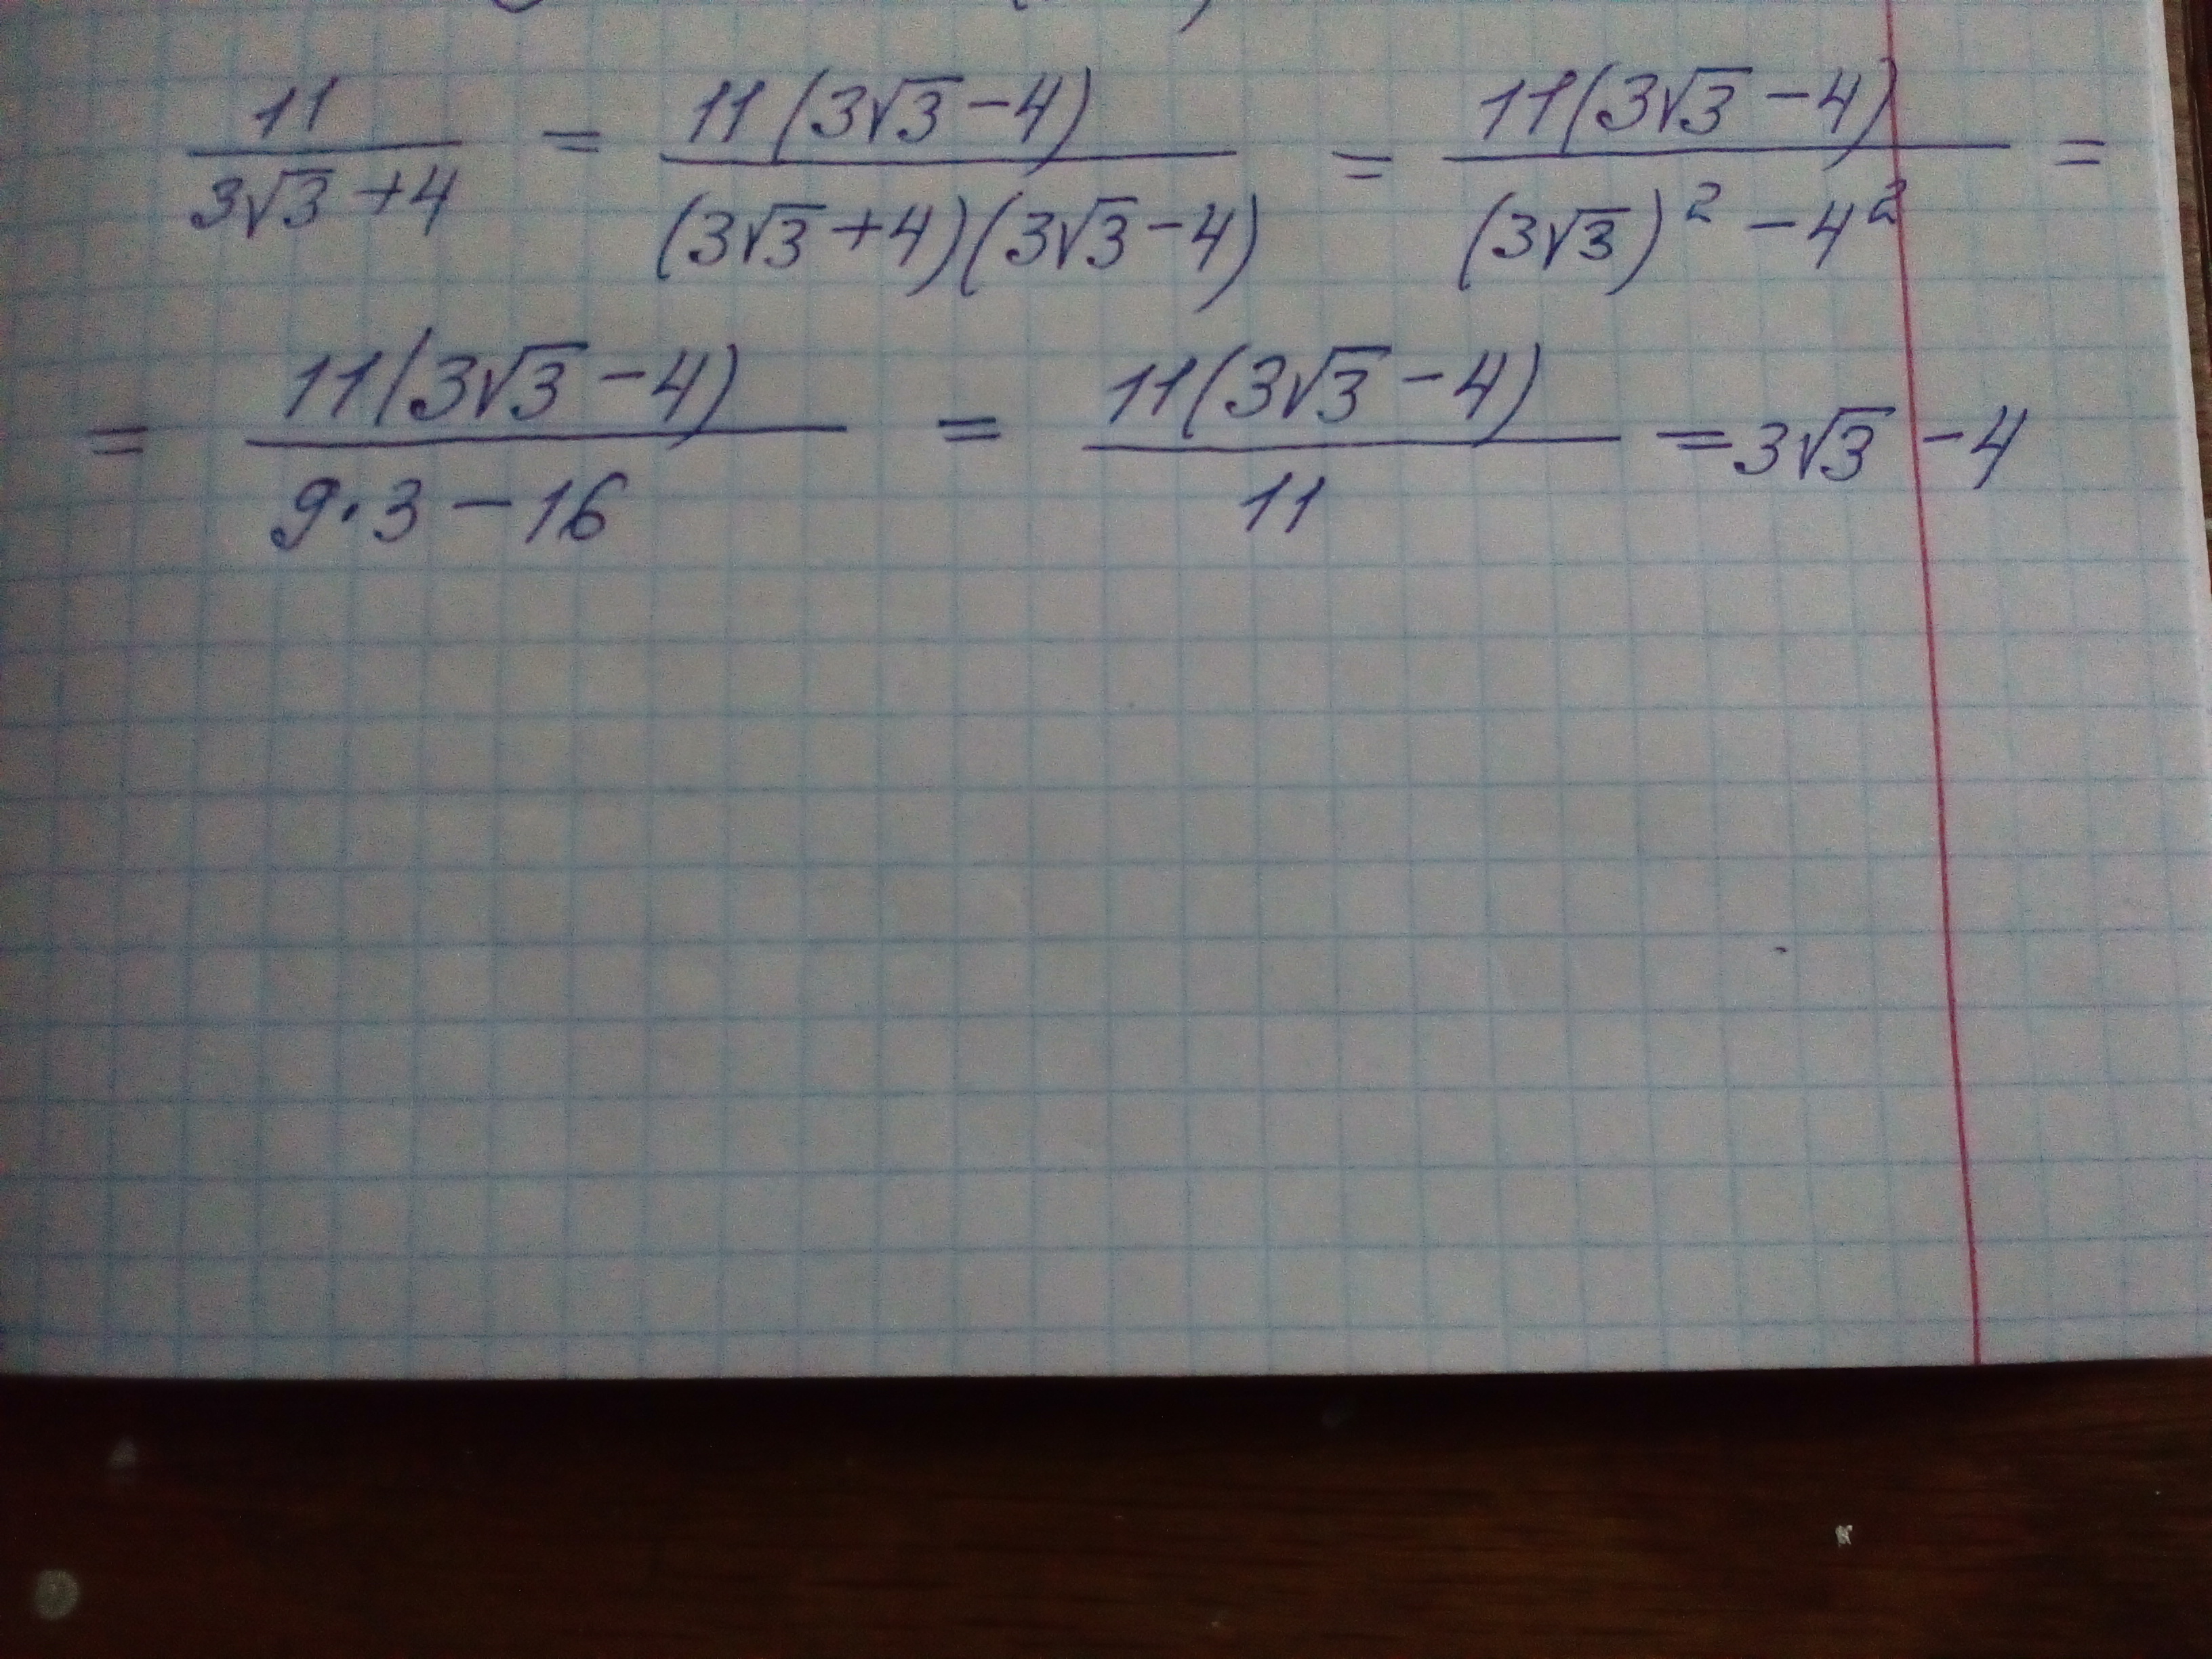 11/(3√3+4) = 11(3√3-4)/((3√3+4)(3√3-4)) = 11(3√3-4)/((3√3)²-4²) =
= 11(3√3-4)/(9·3-16) = 11(3√3-4)/11 = 3√3-4